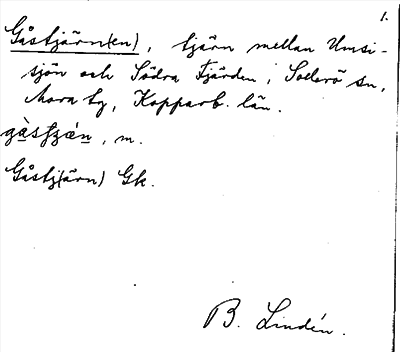 1.
Gåstjärn(en), tjärn mellan Unsi-
sjön och Södra Fjärden, Sollerö sn,
Mora tg, Kopparb. län.
m.
Gåstj(ärn) Gk.
B. Lindén.